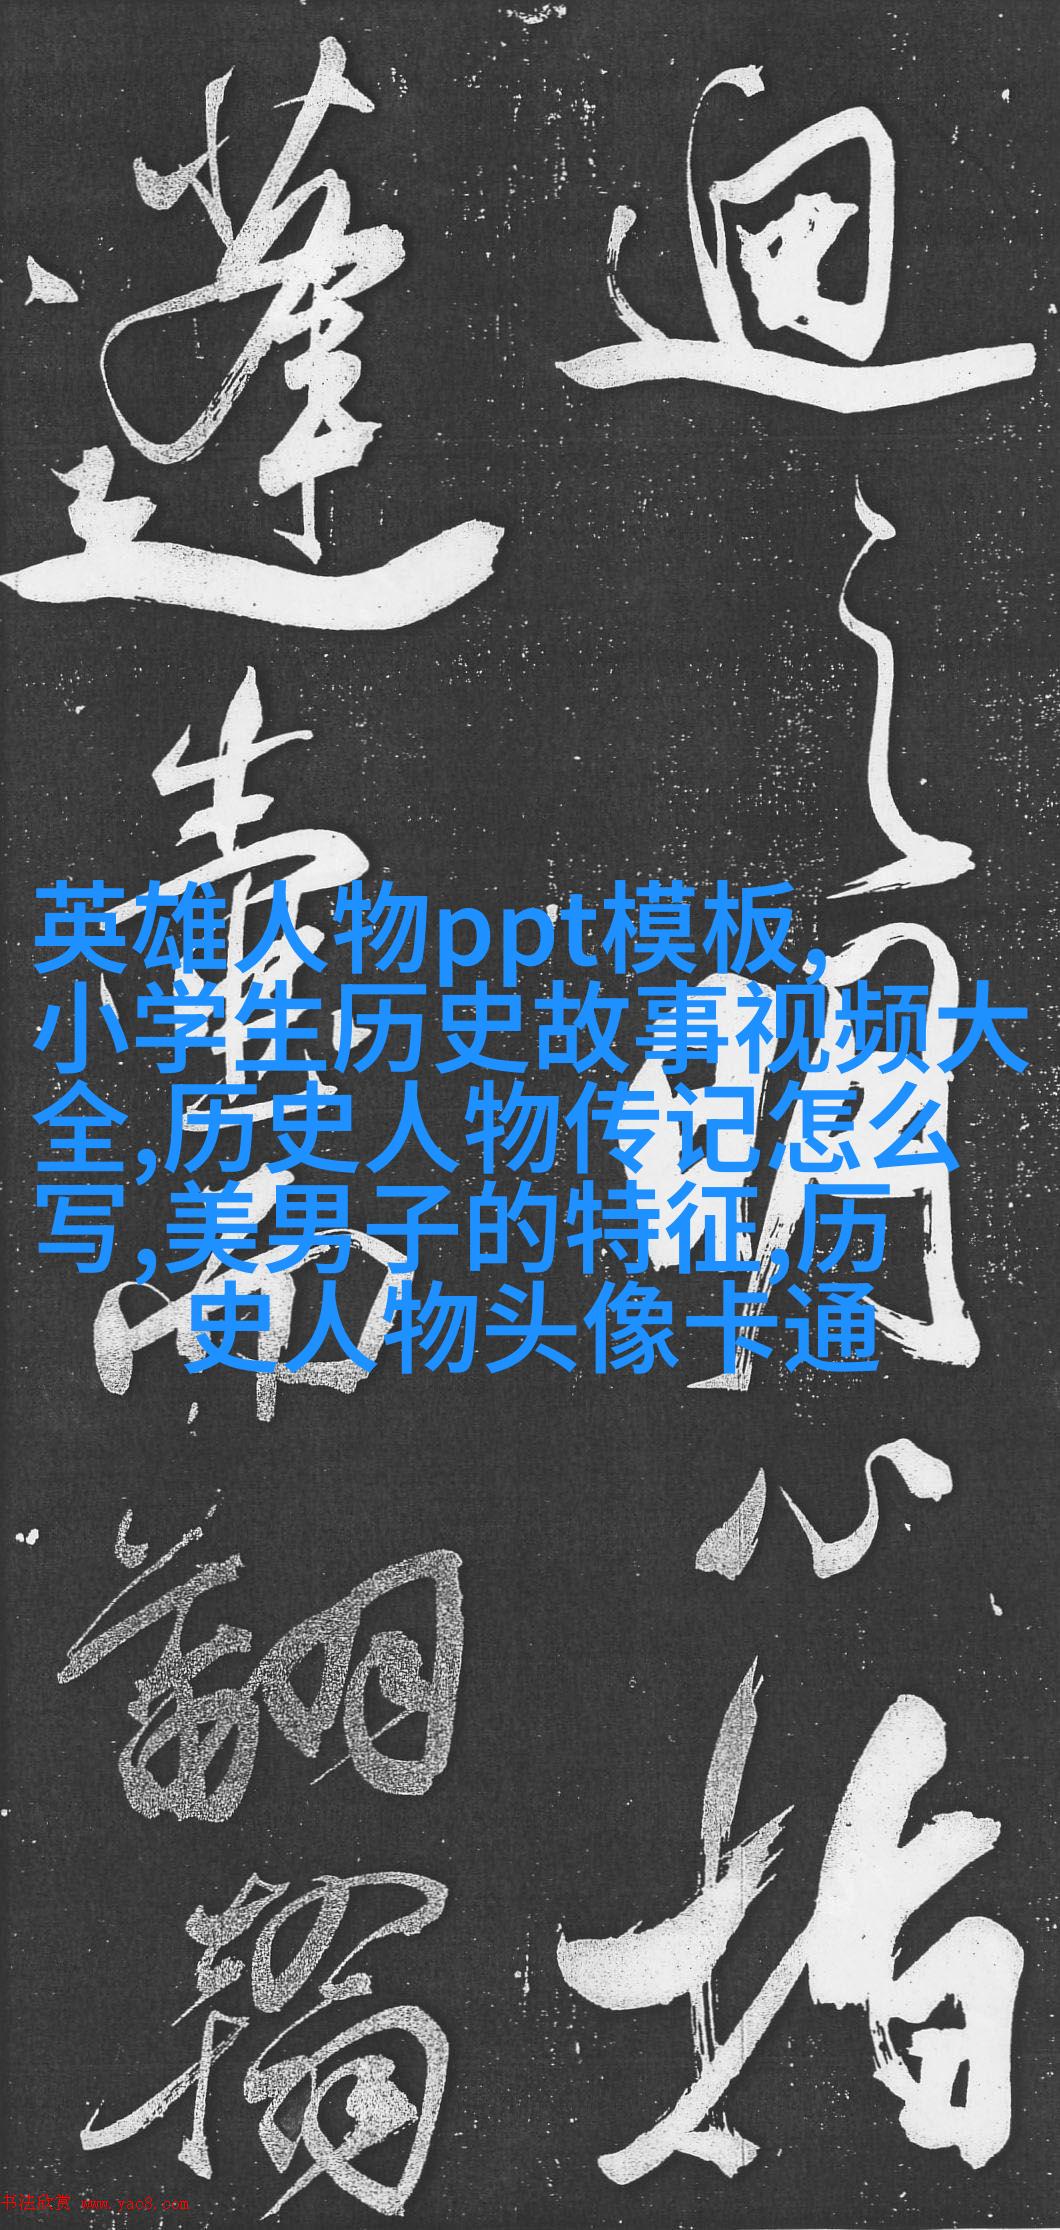 迴
之
明
心
指
蓬
英雄人物ppt模板,
小学生历史故事视频大
全,历史人物传记怎么
写,美男子的特征,历
史人物头像卡通
书法欣赏 www.yac8.com